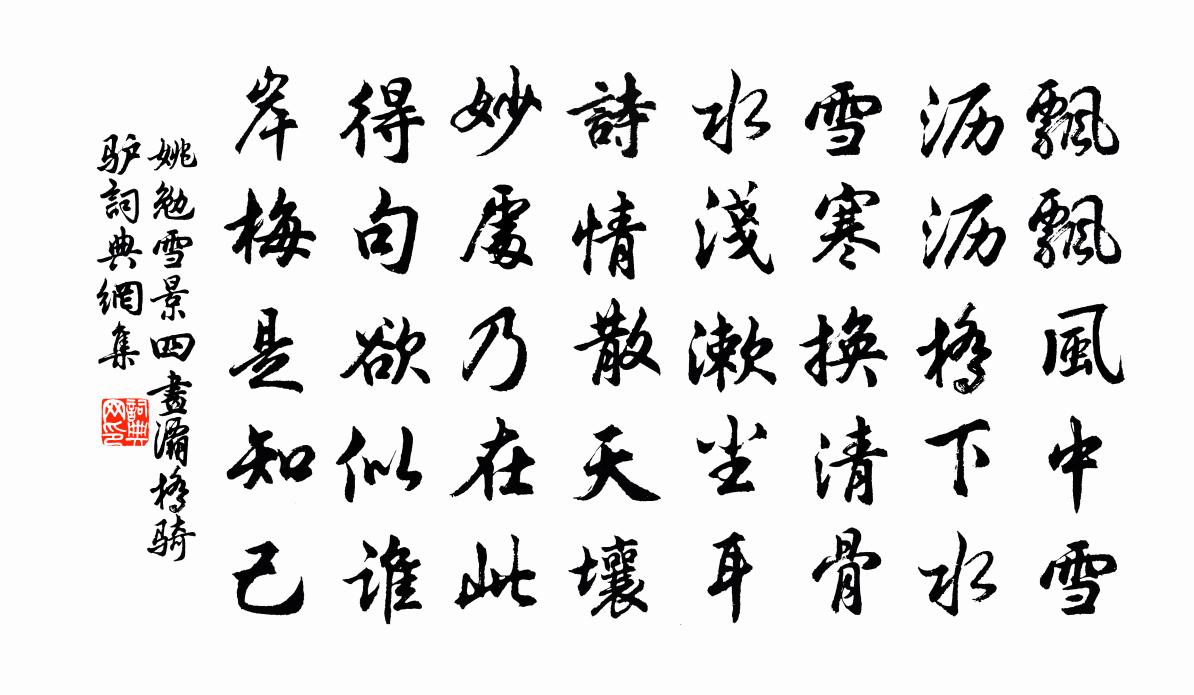 飄飄風中雪
沥沥橋下水
雪寒換清骨
水淺漱尘耳
詩情散天壤
妙處乃在此
得句欲似谁
岸梅是知己
姚勉雪景四畫灞橋骑
驴詞典網集
詞典
网印